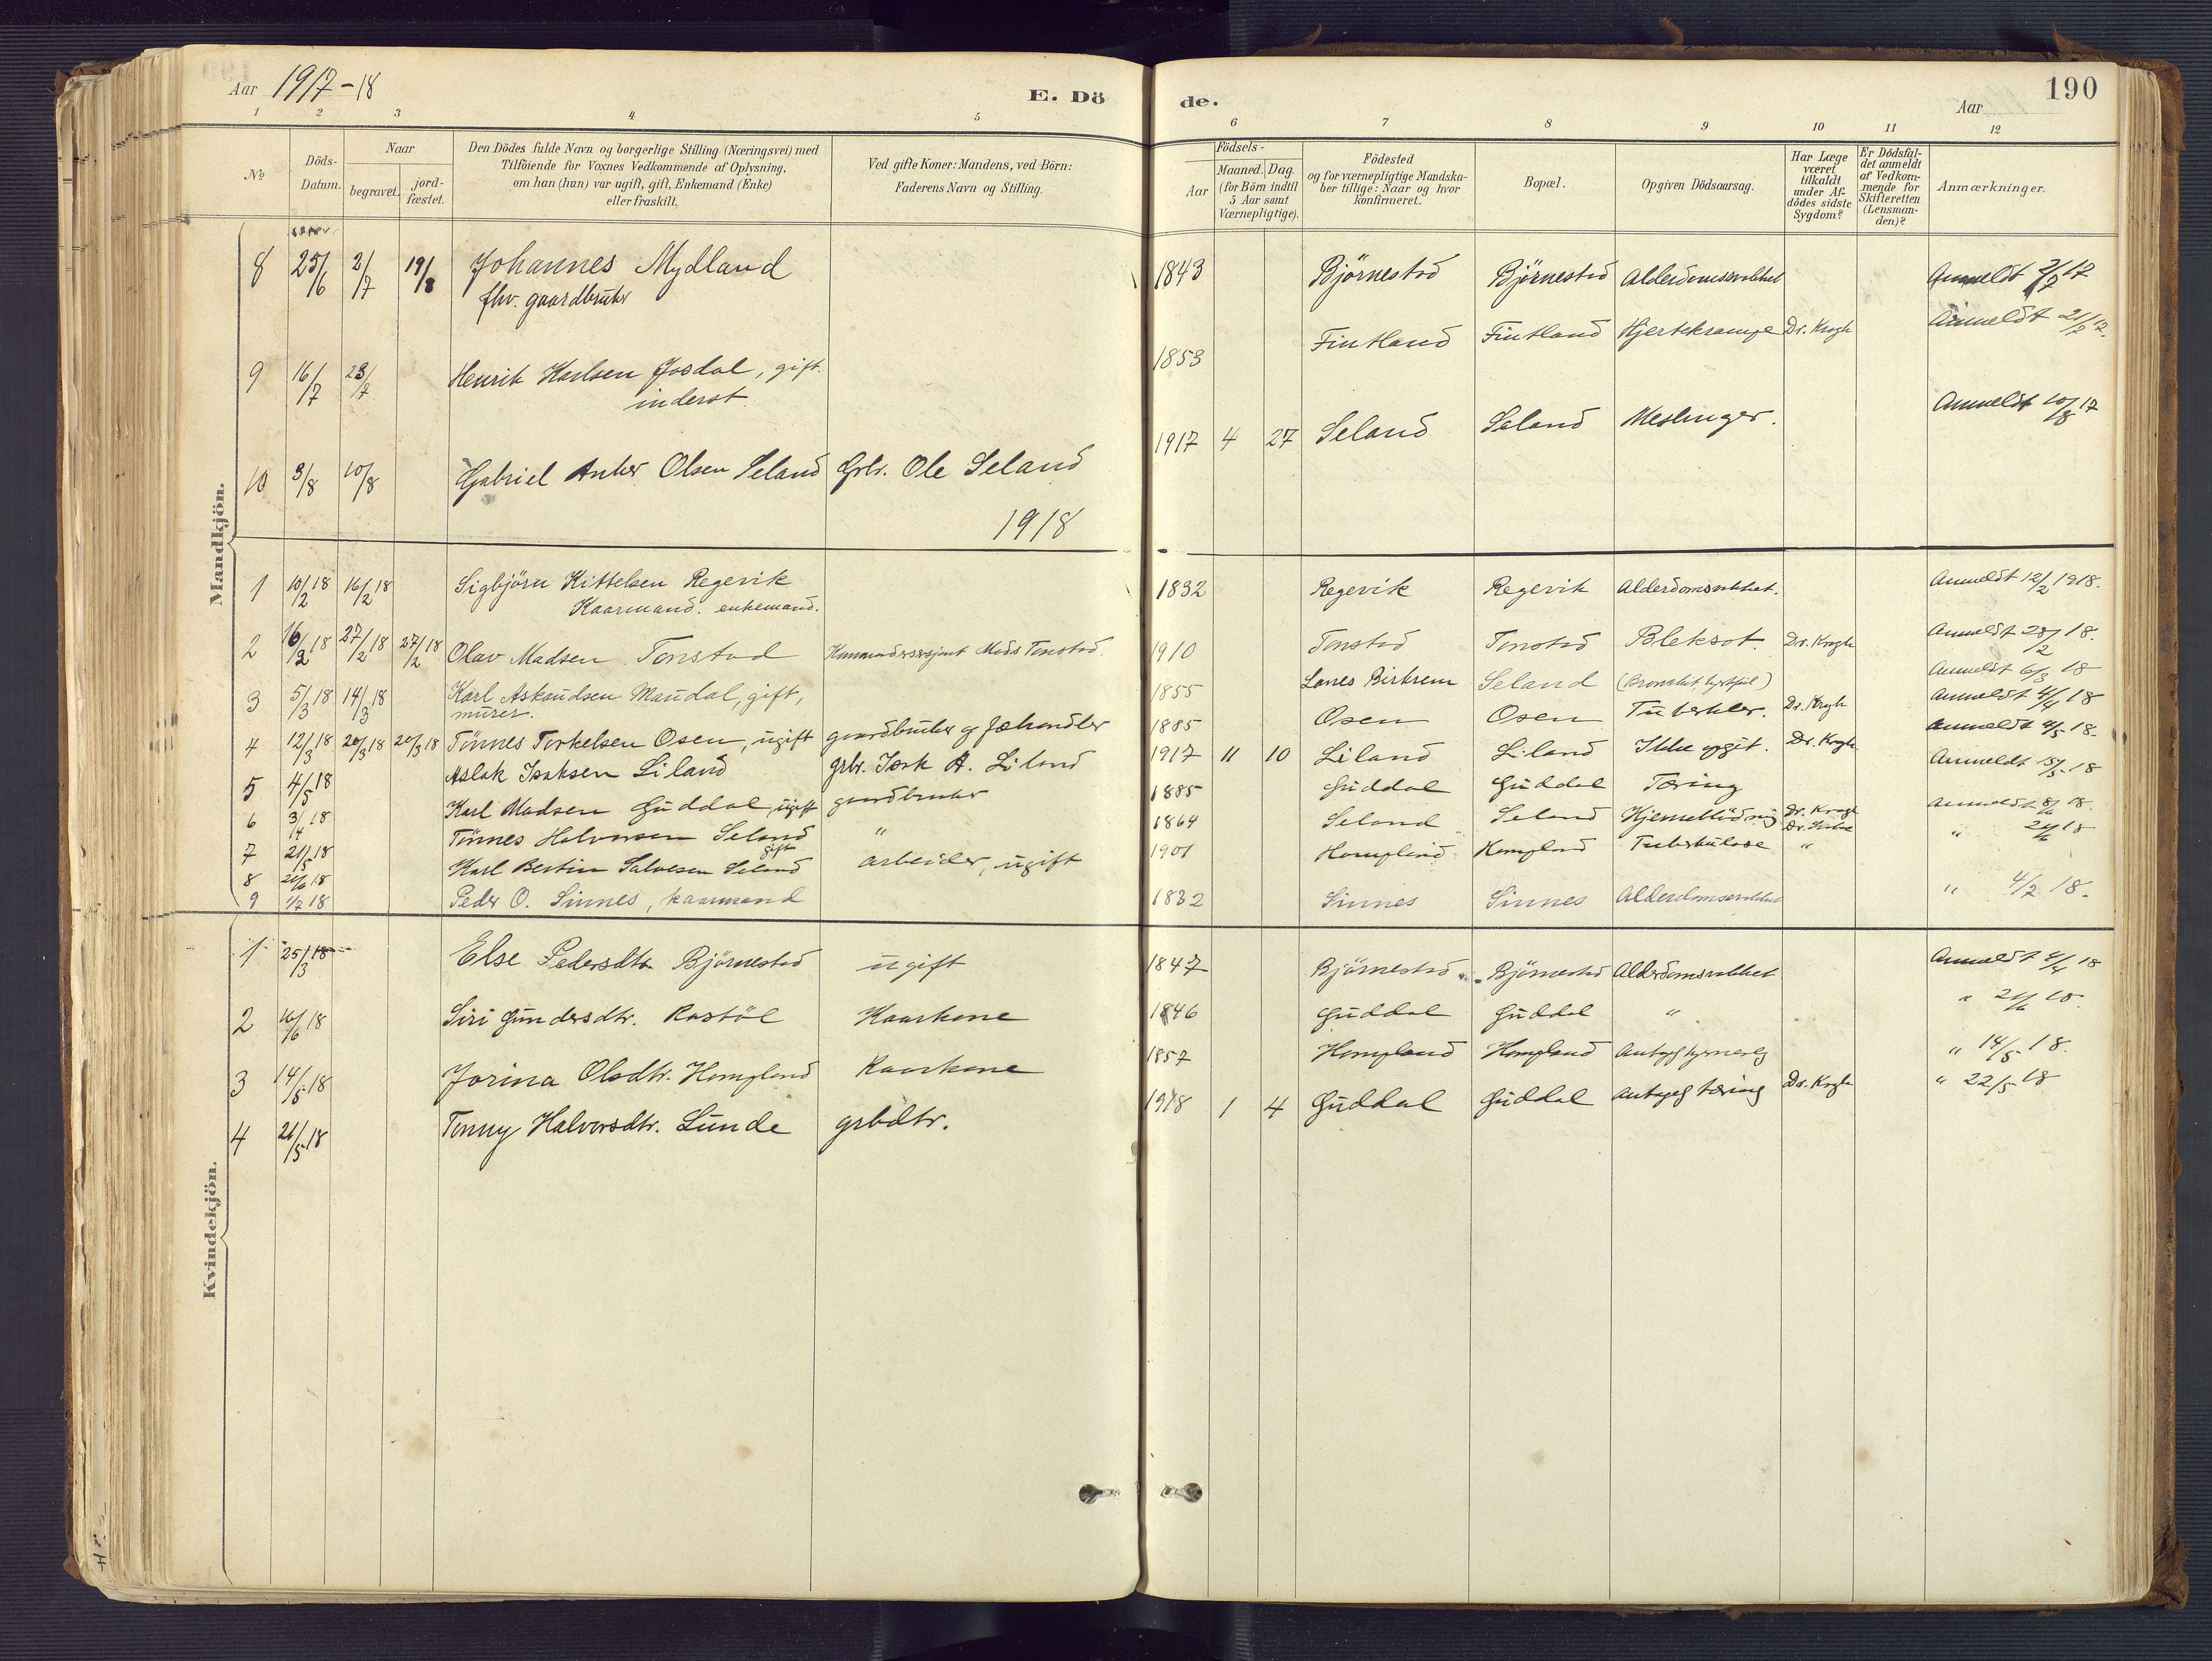 Aar 1917-18
E. Dö
de.
190
Aar
1 2 3 4 5 6 7 8 9 10 11 12
No
Döds-Datum.
Naar
begravet.
jord-fæstet.
Den Dödes fulde Navn og borgerlige Stilling (Næringsvei) med
Tilföiende for Voxnes Vedkommende af Oplysning,
om han (hun) var ugift, gift, Enkemand (Enke)
eller fraskilt.
Ved gifte Koner: Mandens, ved Börn:
Faderens Navn og Stilling.
Födsels-
Aar
Maaned. Dag.
(for Börn indtil
5 Aar samt
Værnepligtige).
Födested
og for værnepligtige Mandska-
ber tillige: Naar og hvor
konfirmeret.
Bopæl.
Opgiven Dödsaarsag.
Har Læge
været
tilkaldt
under Af-
dödes sidste
Sygdom?
Er Dödsfal-
det anmeldt
af Vedkom-
mende for
Skifteretten
(Lensman-
den)?
Anmærkninger.
Mandkjön.
8 25/6 2/7 19/8 Johannes Mydland 1843 Björnestad Björnestad Alderdomssvakhet Anmeldt 2/7 17
fhv. gaardbruker
9 16/7 23/7 Henrik Karlsen Josdal, gift. 1853 Fintland Fintland Hjertekrampe Dr. Krogh Anmeldt
inderst
10 3/8 10/8 Gabriel Anker Olsen Seland Grbr. Ole Seland 1917 4 27 Seland Seland Meslinger. Anmeldt 10/8 17
1918
1 10/2 18 16/2 18 Sigbjörn Kittelsen Regevik 1832 Regevik Regevik Alderdomssvakhet. Anmeldt 12/2 1918.
Kaarmand. enkemand.
2 16/2 18 27/2 18 27/2 18 Olav Madsen Tonstad Mads Tonstad. 1910 Tonstad Tonstad Bleksot. Dr. Krogh Anmeldt 28/2 18.
3 5/3 18 14/3 18 Karl Askeudsen Maudal, gift, 1855 Birkrem Seland Anmeldt 6/3 18
murer.
4 12/3 18 20/3 18 20/3 18 Tönnes Torkelsen Osen, ugift gaardbruker og fæhandler 1885 Osen Osen Tuberkler. Dr. Krogh Anmeldt 4/4 18
5 4/5 18 Aslak Isaksen Liland grbr. Isak A. Liland 1917 11 10 Liland Liland Ikke opgit. Dr. Krogh Anmeldt 4/5 18.
6 3/4 18 Karl Madsen Guddal, ugift gaardbruker 1885 Guddal Guddal Tæring Anmeldt 15/5 18
7 21/5 18 Tönnes Halvorsen Seland gift " 1864 Seland Seland Dr. Krogh Anmeldt
8 18 Karl Bertin Salvesen Seland arbeider, ugift 1901 Hompland Hompland Tuberkulose " "
9 18 Peder O. Sinnes, kaarmand 1832 Sinnes Sinnes Alderdomssvakhet " 4/2 18.
Kvindekjön.
1 25/3 18 Else Pedersdtr Björnestad ugift 1847 Björnestad Björnestad Alderdomssvakhet Anmeldt 4/4 18
2 16/6 18 Siri Gundersdtr. Rostöl Kaarkone 1846 Guddal Guddal " "
3 14/5 18 Jorina Olsdtr. Hompland Kaarkone 1857 Hompland Hompland " 14/5 18.
4 21/5 18 Tonny Halvorsdtr. Lunde grbdtr. 1918 1 4 Guddal Guddal Antagelig tæring Dr. Krogh " 22/5 18